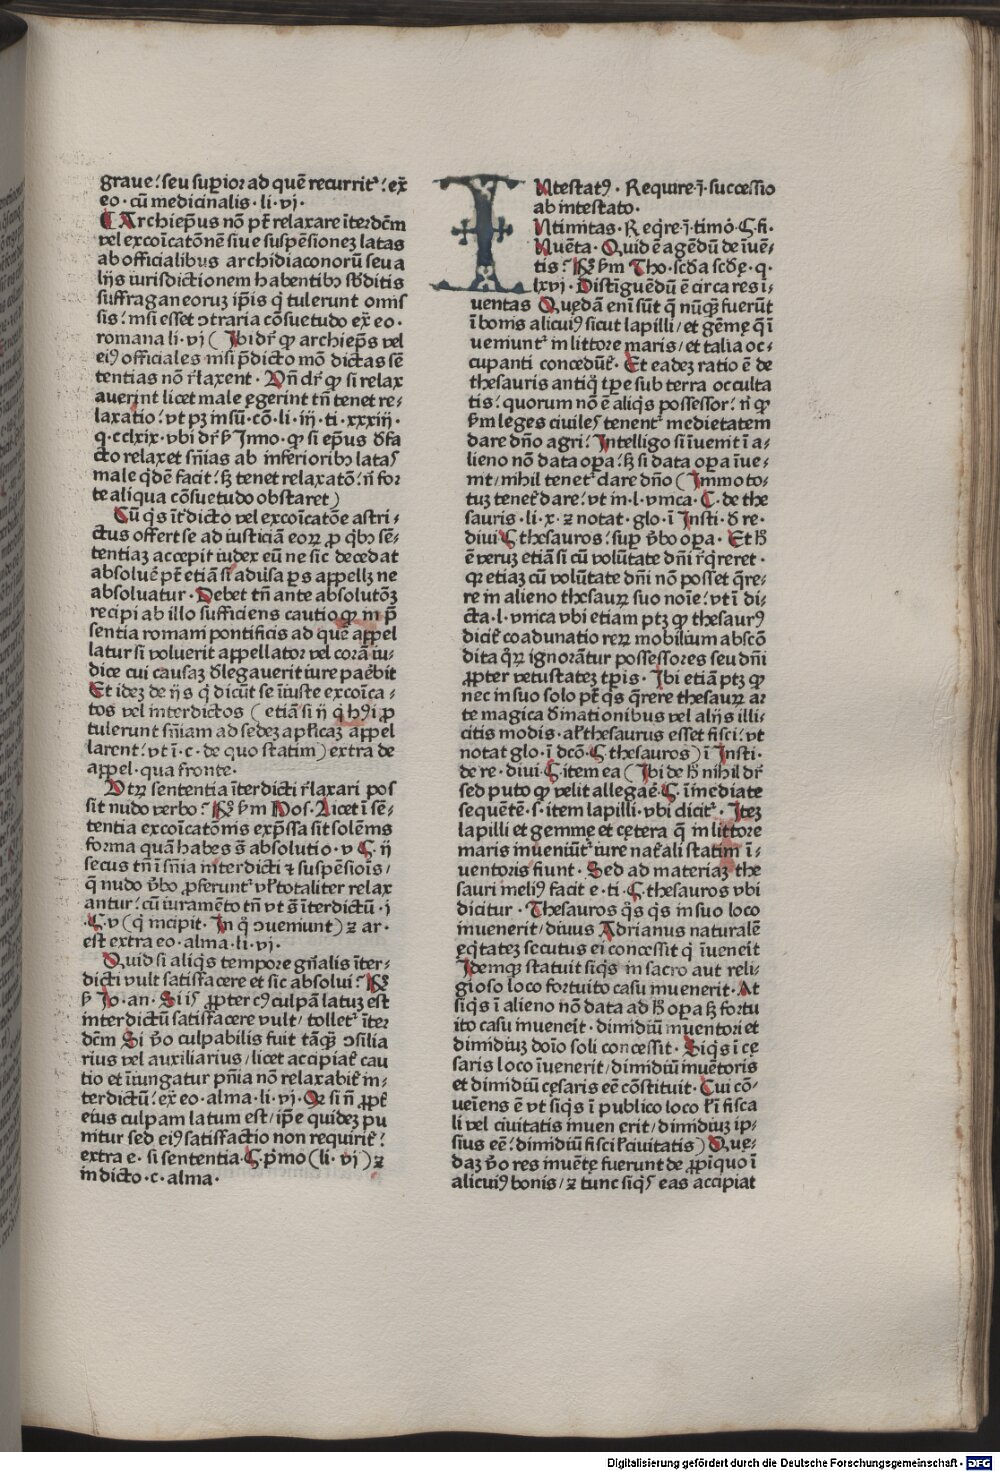 graue? seu superior ad quē recurrit᷑? ex̄
eo · cū medicinalis · li · vj ·
Archiep̄us nō pt̄ relaxare īterdc̄m
vel excōicatōnē siue suspēsionez latas
ab officialibus archidiaconorū seu a
lijs iurisdictionem habentibꝫ sb̄ditis
suffraganeoruz ip̄is q̇ tulerunt omis
sis? nisi esset ↄtraria cōsuetudo ex̄ eo ·
romana li · vj ( Ibi dr̄ ꝙ archiep̄s vel
eiꝰ officiales nisi p̄dicto mō dictas sē
tentias nō r̄laxent · Vn̄ dr̄ ꝙ si relax
auerint licet male egerint tn̄ tenet re⸗
laxatio? vt pꝫ in sū · cō · li · iij · ti · xxxiij ·
q · cclxix · vbi dr̄ ẜ Inno · ꝙ si ep̄us d̄ fa
cto relaxet sn̄ias ab inferioribꝫ latas
male q̇dē facit? sꝫ tenet relaxatō? n̄ for
te aliqua cōsuetudo obstaret )
Cū q̇s īt̄dicto vel excōicatōe astri⸗
ctus offert se ad iusticiā eoꝝ ꝓ q̇bꝫ sē⸗
tentiaz accepit iudex eū ne sic decedat
absoluē pt̄ etiā si aduīsa ꝑs appellꝫ ne
absoluatur · Debet tn̄ ante absolutōꝫ
recipi ab illo sufficiens cautio ꝙ in p̄
sentia romani pontificis ad quē appel
latur si voluerit appellator vel corā iu⸗
dice cui causaz d̄legauerit iure paēbit
Et idez de ijs q̇ dicūt se īiuste excōica⸗
tos vel interdictos ( etiā si ij q̇ hꝰi ꝓ
tulerunt sn̄iam ad sedez ap̄licaz appel
larent? vt ī · c · de quo statim ) extra de
appel · qua fronte ·
Vtꝝ sententia īterdicti r̄laxari pos
sit nudo verbo? Rꝫ ẜm Hos · Licet ī sē⸗
tentia excōicatōnis exp̄ssa sit solēnis
forma quā habes s̄ absolutio · v ꝯ · ij
secus tn̄ ī sn̄ia interdicti ⁊ suspēsiois/
q̄ nudo v̄bo ꝓferunt᷑ vl̄ totaliter relax
antur? cū iuramēto tn̄ vt s̄ īterdictū · j
· ꝯ · v ( q̇ incipit · In q̇ ↄueniunt ) ⁊ ar ·
est extra eo · alma · li · vj ·
Quid si aliq̇s tempore gn̄alis īter⸗
dicti vult satisfacere et sic absolui? Rꝫ
ẜ Jo · an · Si is ꝓpter cꝰ culpā latuz est
interdictū satisfacere vult/ tollet᷑ īter
dc̄m Si v̄o culpabilis fuit tāq̄ꝫ ↄsilia
rius vel auxiliarius/ licet accipiat᷑ cau
tio et īiungatur pn̄ia nō relaxabit᷑ in⸗
terdictū? ex̄ eo · alma · li · vj · Qꝛ si n̄ ꝓpt᷑
eius culpam latum est/ ip̄e quidez pu
nitur sed eiꝰ satisfactio non requirit᷑?
extra e · si sententia · ꝯ p̄mo ( li · vj ) ⁊
in dicto · c · alma ·
INtestatꝰ · Require · j · successio
ab intestato ·
Ntimitas · Req̇re · j · timō · ꝯ · fi ·
Nuēta · Quid ē agēdū de īuē⸗
tis? Rꝫ ẜm Tho · scd̄a scd̄ę · q ·
lxvj · Distīguēdū ē circa res ī⸗
uentas Quędā eni sūt q̄ nūq̄ꝫ fuerūt
ī bonis alicuiꝰ sicut lapilli/ et gēmę q̄ ī
ueniunt᷑ in littore maris/ et talia oc⸗
cupanti concedūt᷑ · Et eadez ratio ē de
thesauris antiq̇ tp̄e sub terra occulta
tis? quorum nō ē aliq̇s possessor? n̄ ꝙ
ẜm leges ciuiles tenent᷑ medietatem
dare dn̄o agri? Intelligo si īuenit ī a⸗
lieno nō data opa? sꝫ si data opa īue⸗
nit/ nihil tenet᷑ dare dn̄o ( Immo to⸗
tuz tenet᷑ dare? vt in · l · vnica · C · de the
sauris · li · x · ⁊ notat · glo · ī Insti · d̄ re ·
diui ꝯ thesauros? suꝑ v̄bo opa · Et h̄
ē veruz etiā si cū volūtate dn̄i r̄q̇reret ·
qꝛ etiaz cū volūtate dn̄i nō posset q̄re⸗
re in alieno thesauꝝ suo noīe? vt ī di⸗
cta · l · vnica vbi etiam ptꝫ ꝙ thesaurꝰ
dicit᷑ coadunatio reꝝ mobilium abscō
dita q̇ꝝ ignorātur possessores seu dn̄i
ꝓpter vetustatez tꝑis · Ibi etiā ptꝫ ꝙ
nec in suo solo pt̄ q̇s q̄rere thesauꝝ ar
te magica d̄inationibus vel alijs illi⸗
citis modis · al̄ thesaurus esset fisci? vt
notat glo · ī dcō · ꝯ thesauros ) ī Insti ·
de re · diui · ꝯ item ea ( Ibi de h̄ nihil dr̄
sed puto ꝙ velit allegaē · ꝯ · īmediate
sequētē · s · item lapilli · vbi dicit᷑ · Itez
lapilli et gemmę et cętera q̄ in littore
maris inueniūt᷑ iure nat᷑ali statim ī⸗
uentoris fiunt · Sed ad materiaz the
sauri meliꝰ facit e · ti · ꝯ · thesauros vbi
dicitur · Thesauros q̇s q̇s in suo loco
inuenerit/ diuus Adrianus naturalē
ęq̇tatez secutus ei concessit q̇ īueneīt
Idemqꝫ statuit siq̇s in sacro aut reli⸗
gioso loco fortuito casu inuenerit · At
siq̇s ī alieno nō data ad h̄ opa sꝫ fortu
ito casu inueneīt · dimidiū inuentori et
dimidiuz dn̄o soli concessit · Siq̇s ī cę
saris loco īuenerit/ dimidiū inuētoris
et dimidiū cęsaris eē cōstituit · Cui cō⸗
ueīens ē vt siq̇s ī publico loco l̄ ī fisca
li vel ciuitatis inuen erit/ dimidiuz ip⸗
sius eē? dimidiū fisci l̄ ciuitatis ) Quę⸗
daz v̄o res inuētę fuerunt de ꝓpīquo ī
alicuiꝰ bonis/ ⁊ tunc siq̇s eas accipiat
Digitalisierung gefördert durch die Deutsche Forschungsgemeinschaft · DFG